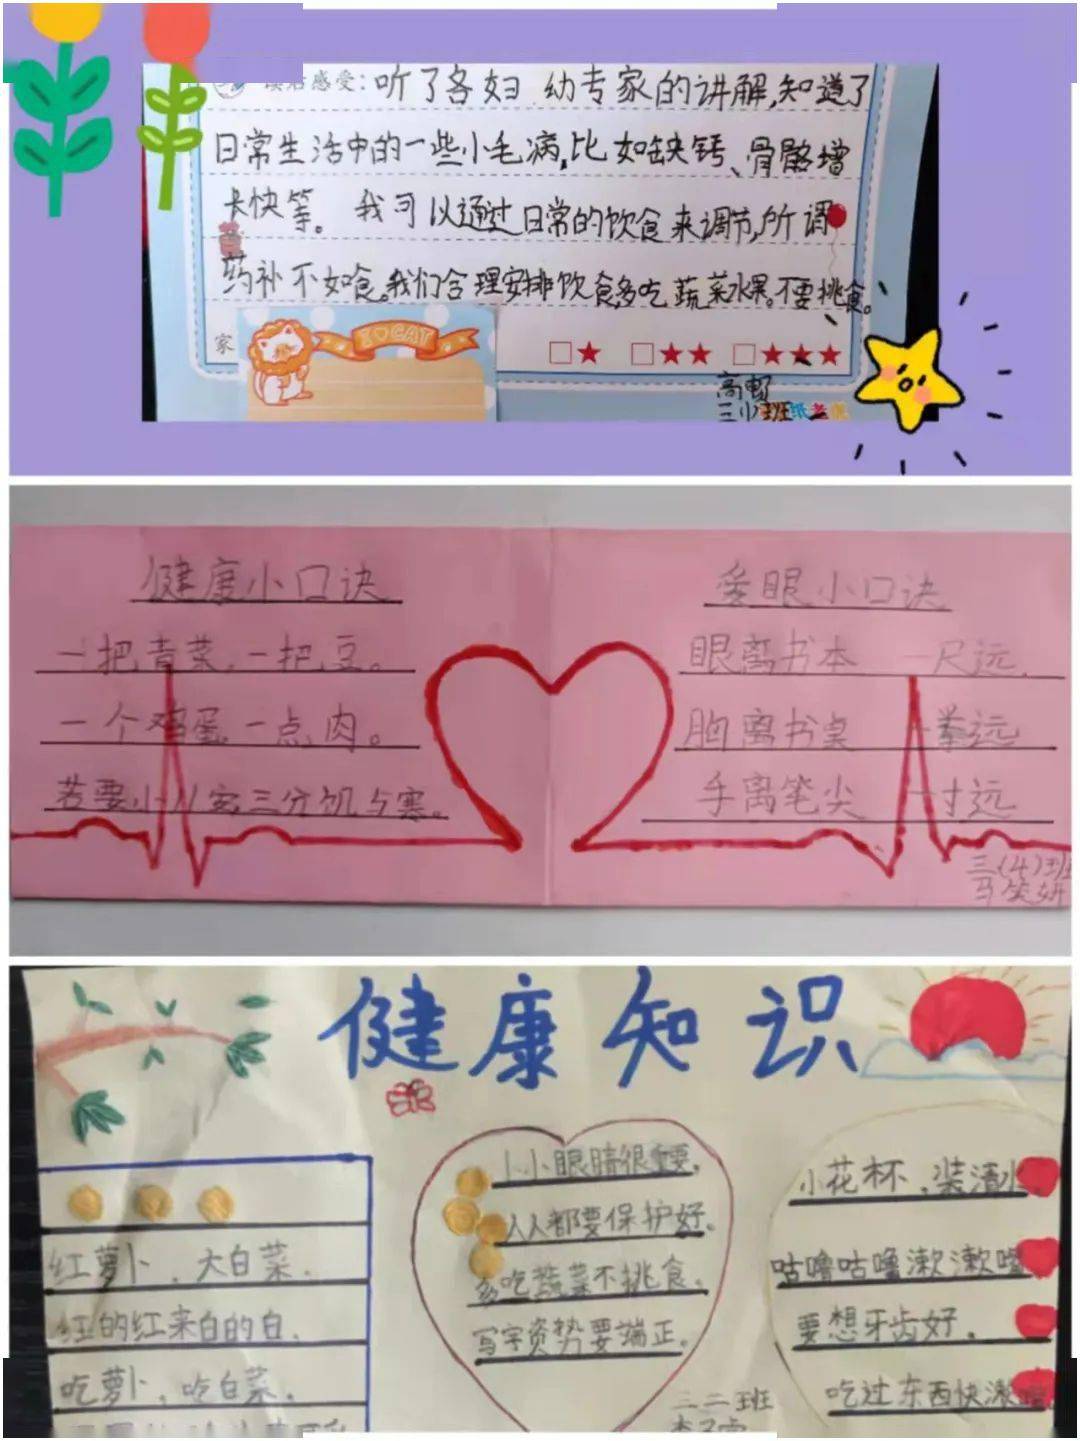 读后感受:听了各妇 幼专家的讲解,知道了
日常生活中的一些小毛病,比如缺钙、骨骼增
长快等。我可以通过日常的饮食来调节,所谓
药补不如食。我们合理安排饮食多吃蔬菜水果。不要挑食。
家
I ♥ CAT
□★ □★★ □★★★
三小班纸
健康小口诀
一把青菜,一把豆。
一个鸡蛋,一点肉。
若要小儿安三分饥与寒。
爱眼小口诀
眼离书本 一尺远.
胸离书桌 一拳远
手离笔尖 一寸远
三(4)班
马笑妍
健康知识
红萝卜,大白菜,
红的红来白的白.
吃萝卜,吃白菜,
小小眼睛很重要,
人人都要保护好。
多吃蔬菜不挑食。
写字资势要端正。
三二班
小花杯,装清水
咕噜咕噜漱漱嘴
要想牙齿好,
吃过东西快漱